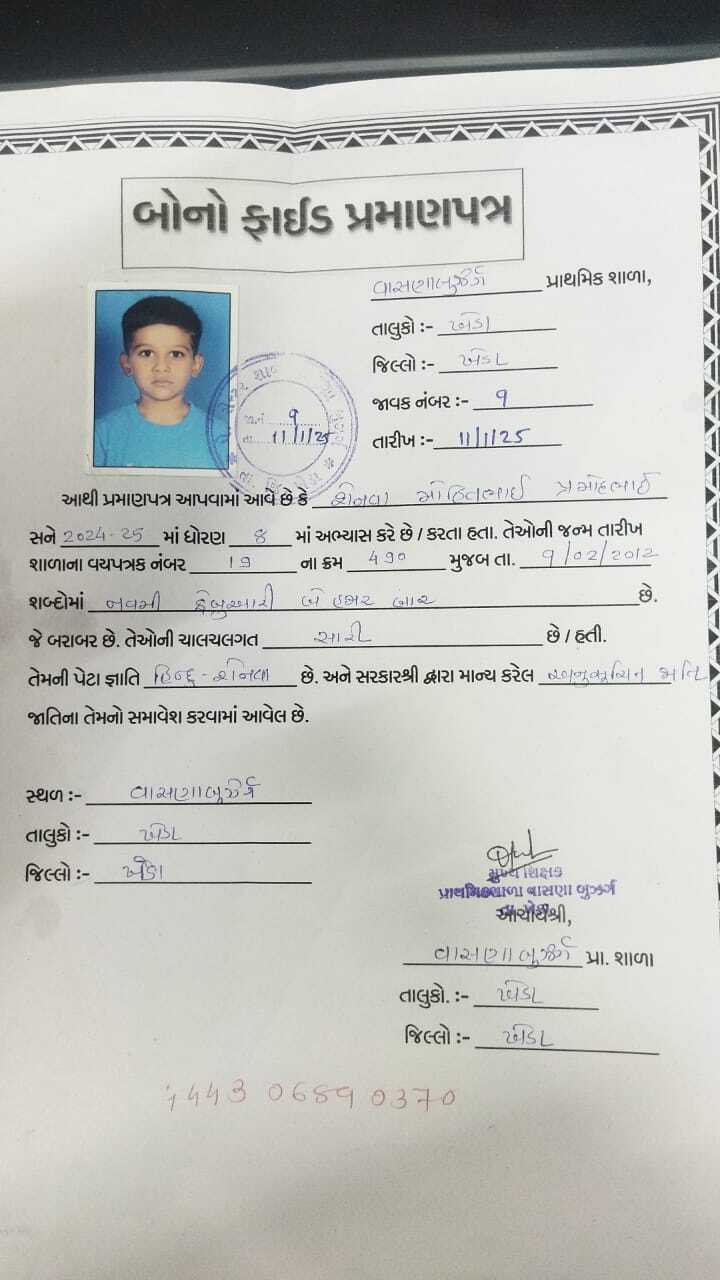 બોનો ફાઈડ પ્રમાણપત્ર
વાસણાબુઝર્ગ પ્રાથમિક શાળા,
તાલુકો :- ખેડા
જિલ્લો :- ખેડા
જાવક નંબર :- ૧
તારીખ :- 11/1/25
જા.નં. ૧
તા. 11/1/25
આથી પ્રમાણપત્ર આપવામાં આવે છે કે શેનવા મોહિતભાઈ પ્રમોદભાઈ
સને 2024-25 માં ધોરણ ૪ માં અભ્યાસ કરે છે / કરતા હતા. તેઓની જન્મ તારીખ
શાળાના વયપત્રક નંબર 19 ના ક્રમ 490 મુજબ તા. ૧/02/2012
શબ્દોમાં ફેબ્રુઆરી બે હજાર બાર છે.
જે બરાબર છે. તેઓની ચાલચલગત સારી છે / હતી.
તેમની પેટા જ્ઞાતિ હિન્દુ - શેનવા છે. અને સરકારશ્રી દ્વારા માન્ય કરેલ અનુસૂચિત જાતિ
જાતિના તેમનો સમાવેશ કરવામાં આવેલ છે.
સ્થળ :- વાસણાબુઝર્ગ
તાલુકો :- ખેડા
જિલ્લો :- ખેડા
મુખ્ય શિક્ષક
પ્રાથમિકશાળા વાસણા બુઝર્ગ
તા. ખેડા
આચાર્યશ્રી,
વાસણા બુઝર્ગ પ્રા. શાળા
તાલુકો. :- ખેડા
જિલ્લો :- ખેડા
0689 0370